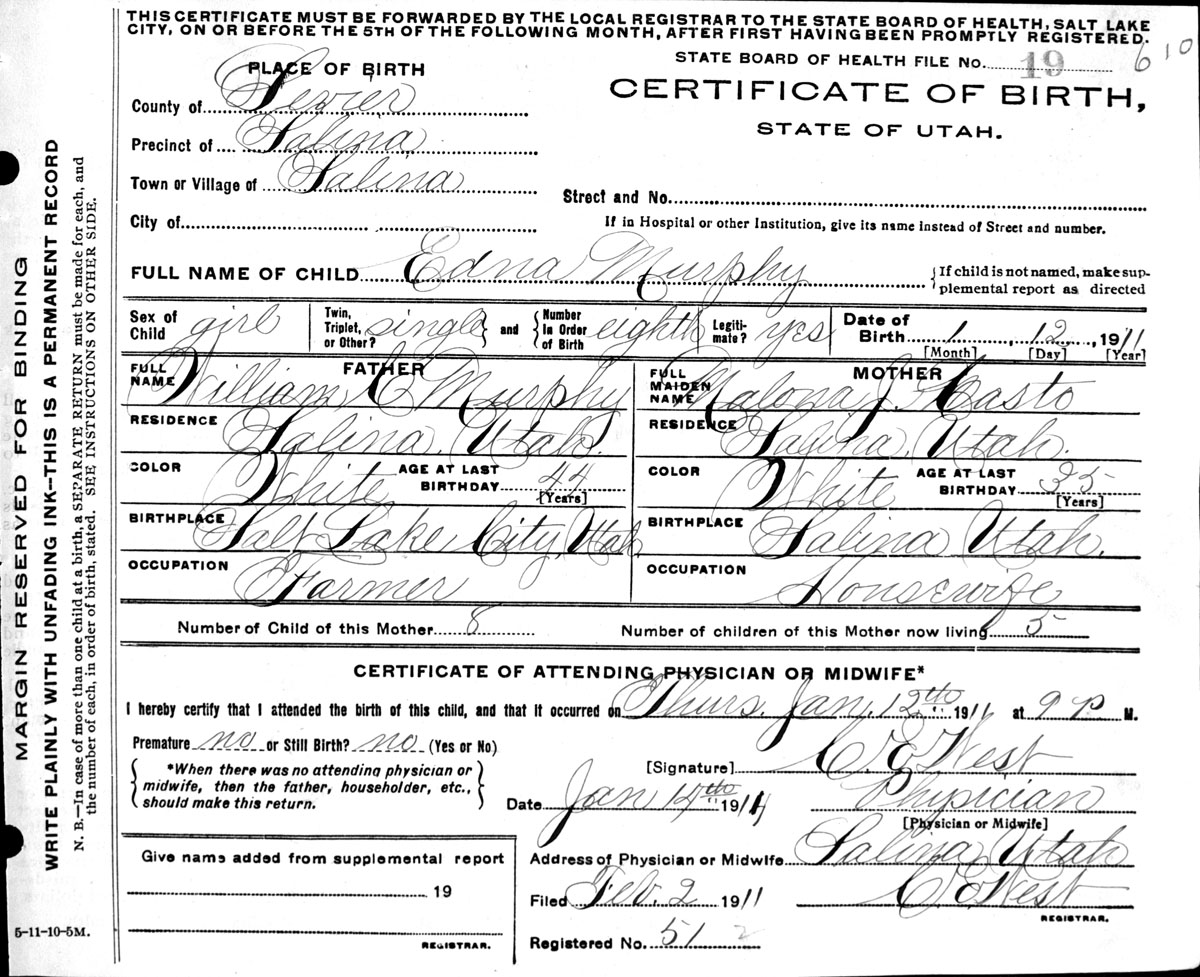 THIS CERTIFICATE MUST BE FORWARDED BY THE LOCAL REGISTRAR TO THE STATE BOARD OF HEALTH, SALT LAKE
CITY, ON OR BEFORE THE 5TH OF THE FOLLOWING MONTH, AFTER FIRST HAVING BEEN PROMPTLY REGISTERED.
STATE BOARD OF HEALTH FILE No. 19 610
PLACE OF BIRTH
CERTIFICATE OF BIRTH,
County of Sevier
STATE OF UTAH.
Precinct of Salina
Town or Village of Salina
Street and No.
City of
If in Hospital or other Institution, give its name instead of Street and number.
FULL NAME OF CHILD Edna Murphy
{If child is not named, make sup-
plemental report as directed
Sex of Child girl Twin, Triplet, or Other? single and Number In Order of Birth eighth Legiti-mate? yes Date of Birth 1 12 1911
[Month] [Day] [Year]
FATHER MOTHER
FULL NAME William C Murphy FULL MAIDEN NAME Malona J. Casto
RESIDENCE Salina, Utah. RESIDENCE Salina, Utah.
COLOR White AGE AT LAST BIRTHDAY 44 [Years] COLOR White AGE AT LAST BIRTHDAY 35 [Years]
BIRTHPLACE Salt Lake City, Utah BIRTHPLACE Salina Utah.
OCCUPATION Farmer OCCUPATION Housewife
Number of Child of this Mother 8 Number of children of this Mother now living 5
CERTIFICATE OF ATTENDING PHYSICIAN OR MIDWIFE*
I hereby certify that I attended the birth of this child, and that it occurred on Thurs. Jan. 12th 1911 at 9 P M.
Premature no or Still Birth? no (Yes or No)
[Signature] C. E. West
*When there was no attending physician or
midwife, then the father, householder, etc.,
should make this return.
Date Jan 14th 1911 Physician
[Physician or Midwife]
Address of Physician or Midwife Salina, Utah
Filed Feb. 2 1911 C. E. West
REGISTRAR.
Registered No. 51 2
Give name added from supplemental report
19
REGISTRAR.
5-11-10-5M.
MARGIN RESERVED FOR BINDING
WRITE PLAINLY WITH UNFADING INK—THIS IS A PERMANENT RECORD
N. B.—In case of more than one child at a birth, a SEPARATE RETURN must be made for each, and
the number of each, in order of birth, stated. SEE INSTRUCTIONS ON OTHER SIDE.